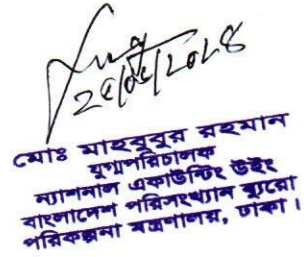 মোঃ মাহবুবুর রহমান
যুগ্মপরিচালক
ন্যাশনাল একাউন্টিং উইং
বাংলাদেশ পরিসংখ্যান ব্যুরো
পরিকল্পনা মন্ত্রণালয়, ঢাকা।